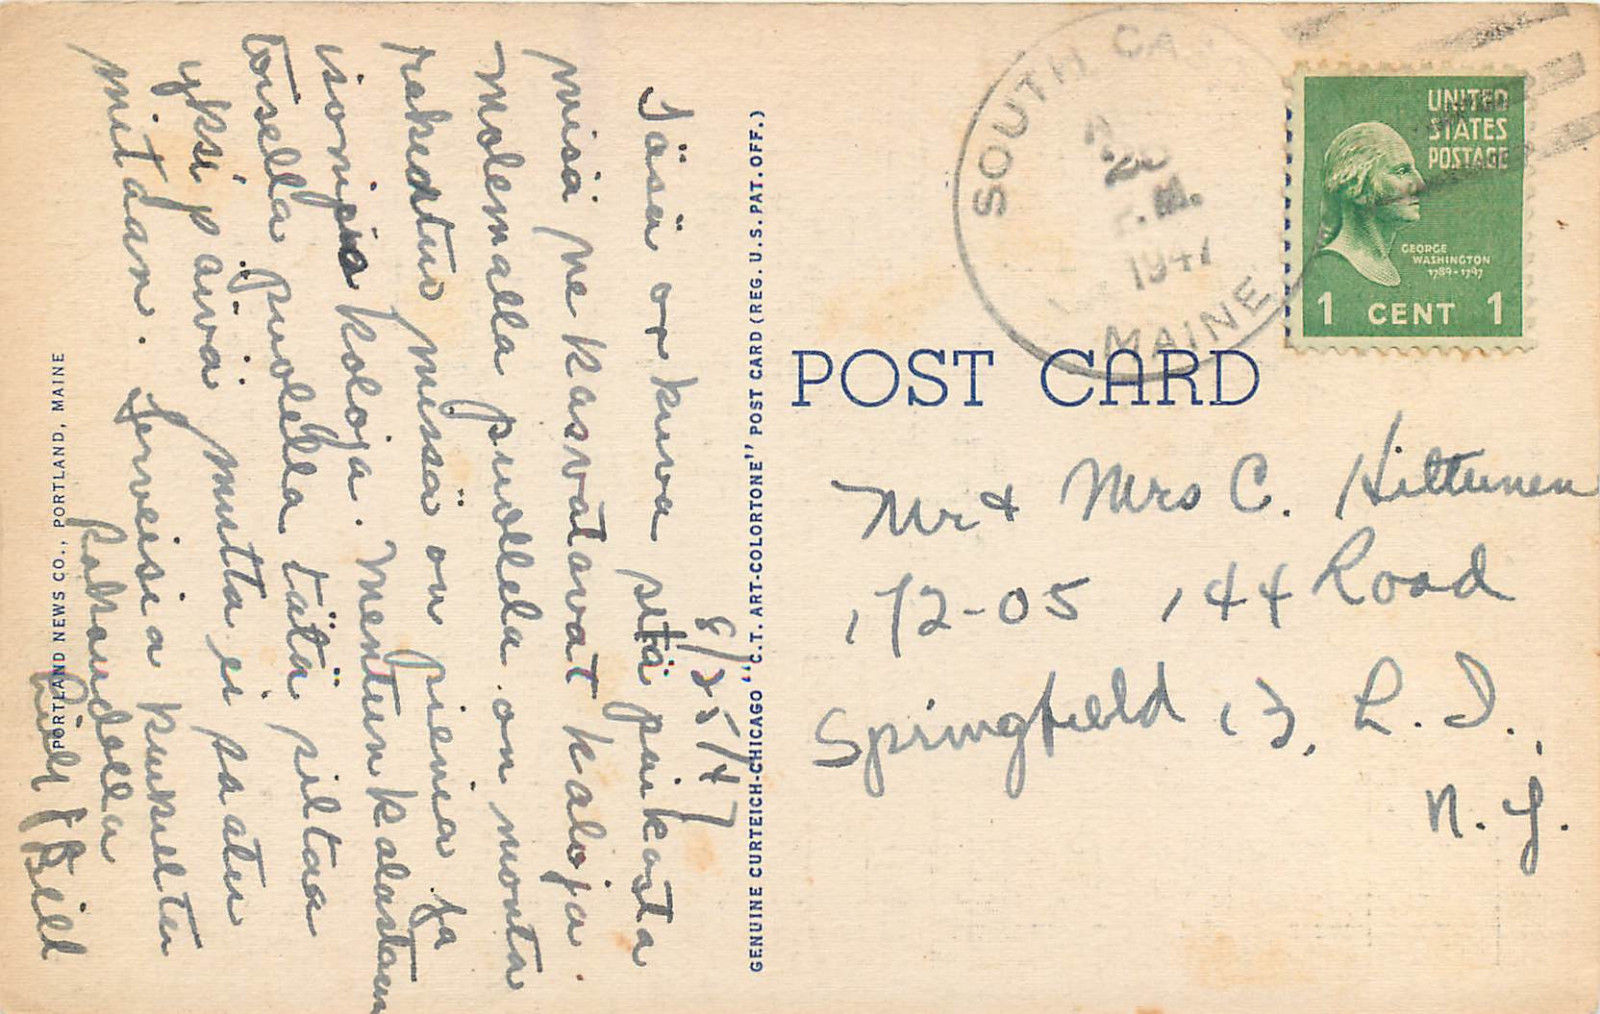 8/25/47
Täsä on kuva sitä paikasta
misä ne kasvatavat kaloja.
Molemalla puolella on monta
rakentus misä on pieniä ja
isonpia koloja. Mentiin kalastaan
toisella puolella tätä siltaa
yksi päivä mutta ei saatu
mitään. Terveisiä kukilta
Rakaudella
Bill
SOUTH CA
20
.M.
1947
MAINE
UNITED
STATES
POSTAGE
GEORGE
WASHINGTON
1789-1797
1 CENT 1
POST CARD
Mr & Mrs C. Hiltunen
172-05 144 Road
Springfield 13, L. I.,
N. Y.
GENUINE CURTEICH-CHICAGO "C.T. ART-COLORTONE" POST CARD (REG. U.S. PAT. OFF.)
PORTLAND NEWS CO., PORTLAND, MAINE